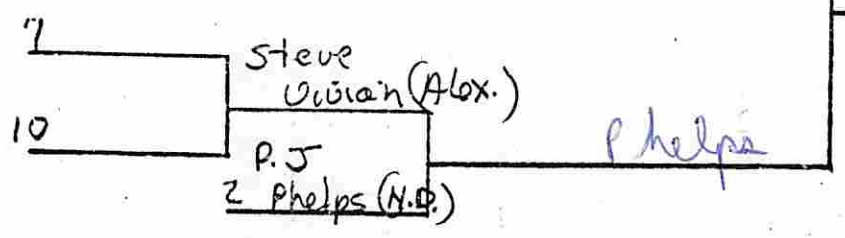 7
Steve
Vivian (Alex.)
10
P.J
2 Phelps (N.D.)
Phelps